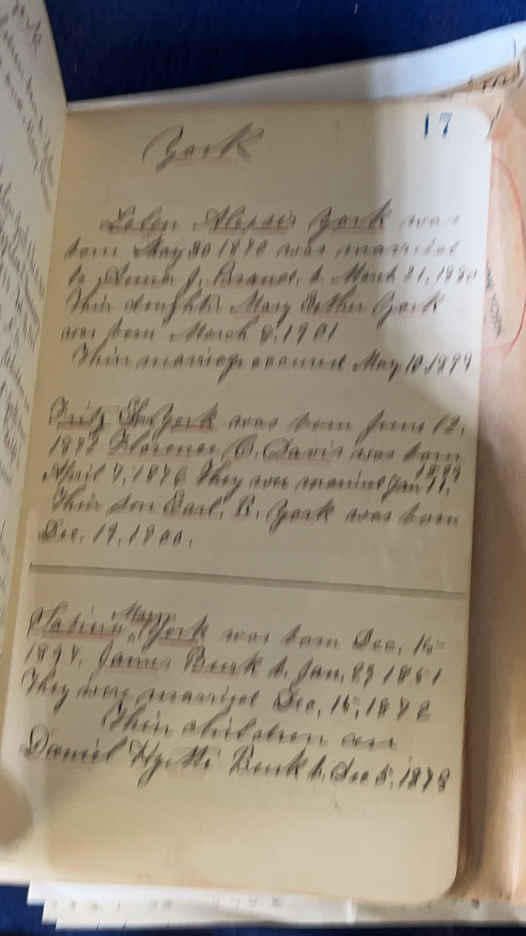 17
York
York was
born May 30 1870 was married
to Anna J. b. March 21, 1880
Their daughter Mary Esther York
was born March 8, 1901
Their marriage occured May 10, 1899
Fritz York was born June 12,
Florence O. Davis was born
April 4, 1876 They were married Jan 11, 1899
Their son Earl. R. York was born
Dec. 19, 1900.
Mary York was born Dec. 16
James Burk b. Jan. 29 1851
They were married Dec, 15, 1872
Their children are
Daniel Burk b. Dec 5, 1873